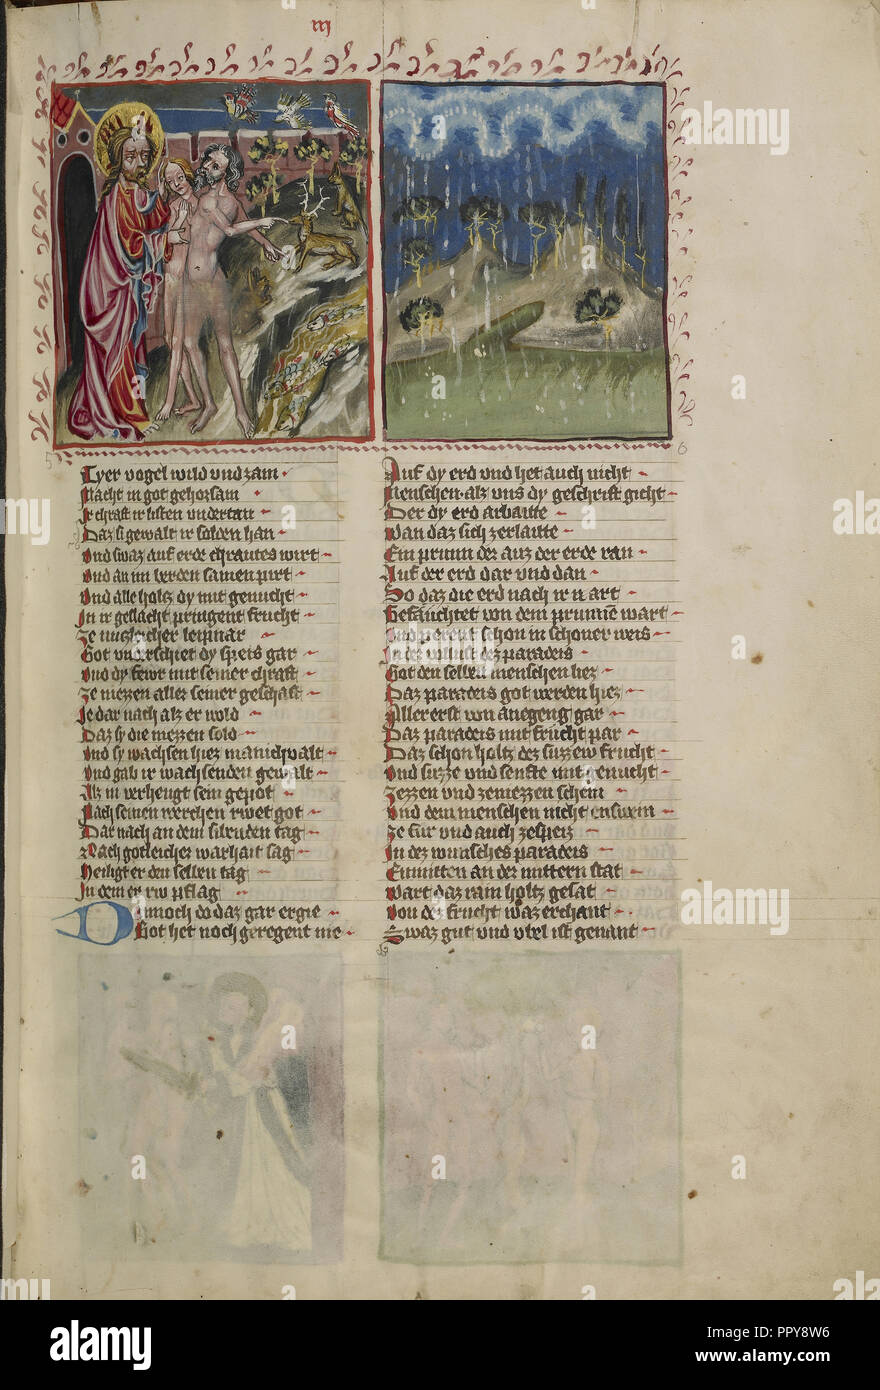 iij
5
6
Tyer vogel wild und zam
Macht in got gehorsam
Ir chraft ir listen undertan
Daz si gewalt ir solden han
Und swaz auf erde chrautes wirt
Und an im berden samen pirt
Und alle holtz dy mit genucht
In ir geslacht pringent frucht
Ze menschleicher leipnar
Got underschiet dy speis gar
Und dy fewr mit seiner chraft
Ze niezzen aller seiner geschaft
Je dar nach als er wold
Daz sy die niezzen sold
Und sy wachsen hiez manichvalt
Und gab ir wachsenden gewalt
Als in verhengt sein gepot
Nach seinen werchen rwet got
Dar nach an dem sibenden tag
Nach gotleicher warhait sag
Heiligt er den selben tag
In dem er rw pflag
Dannoch do daz gar ergie
Got het noch geregent nie
Auf dy erd und het auch nicht
Menschen als uns dy geschrift gicht
Der dy erd arbaitte
Wan daz sich zerlaitte
Ein prunn der auz der erde ran
Auf der erd dar und dan
So daz die erd nach ir art
Gefeuchtet von dem prunne wart
Und perent schon in schoner weis
In der wollust dez paradeis
Got den selben menschen liez
Daz paradeis got werden hiez
Allererst von anegeng gar
Daz paradeis mit frucht par
Daz schon holtz dez suzzew frucht
Und suzze und senfte mit genucht
Zezzen und zeniezzen schein
Und dem menschen nicht enswein
Ze fur und auch zespeis
In dez wunsches paradeis
Enmitten an der mittern stat
Wart daz rain holtz gesat
Von des frucht waz erchant
Swaz gut und ubel ist genant
alamy
Image ID: PPY8W6
www.alamy.com